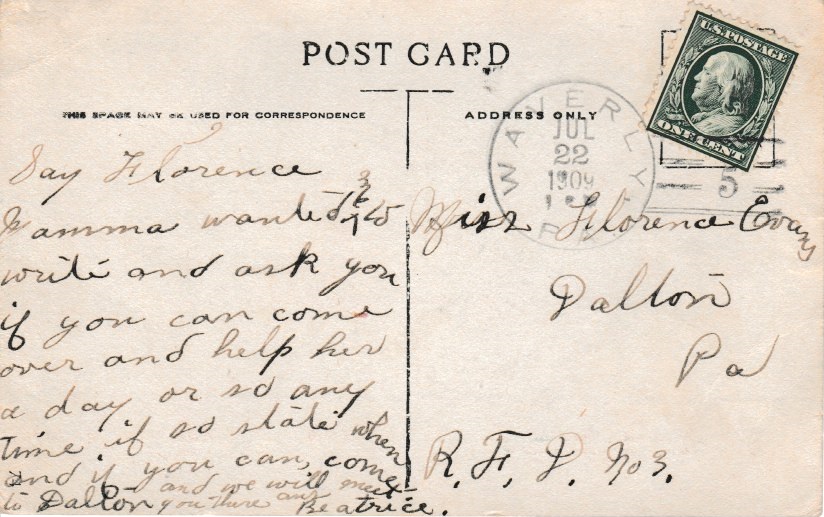 POST CARD
THIS SPACE MAY BE USED FOR CORRESPONDENCE
ADDRESS ONLY
U.S. POSTAGE
ONE CENT
WAVERLY
JUL
22
1909
P
5
Say Florence
Mamma wanted me to
write and ask you
if you can come
over and help her
a day or so any
time if so state when
and if you can, come
to Dalton and we will meet
you there any
Beatrice.
Miss Florence Evans
Dalton
Pa
R. F. D. No 3.